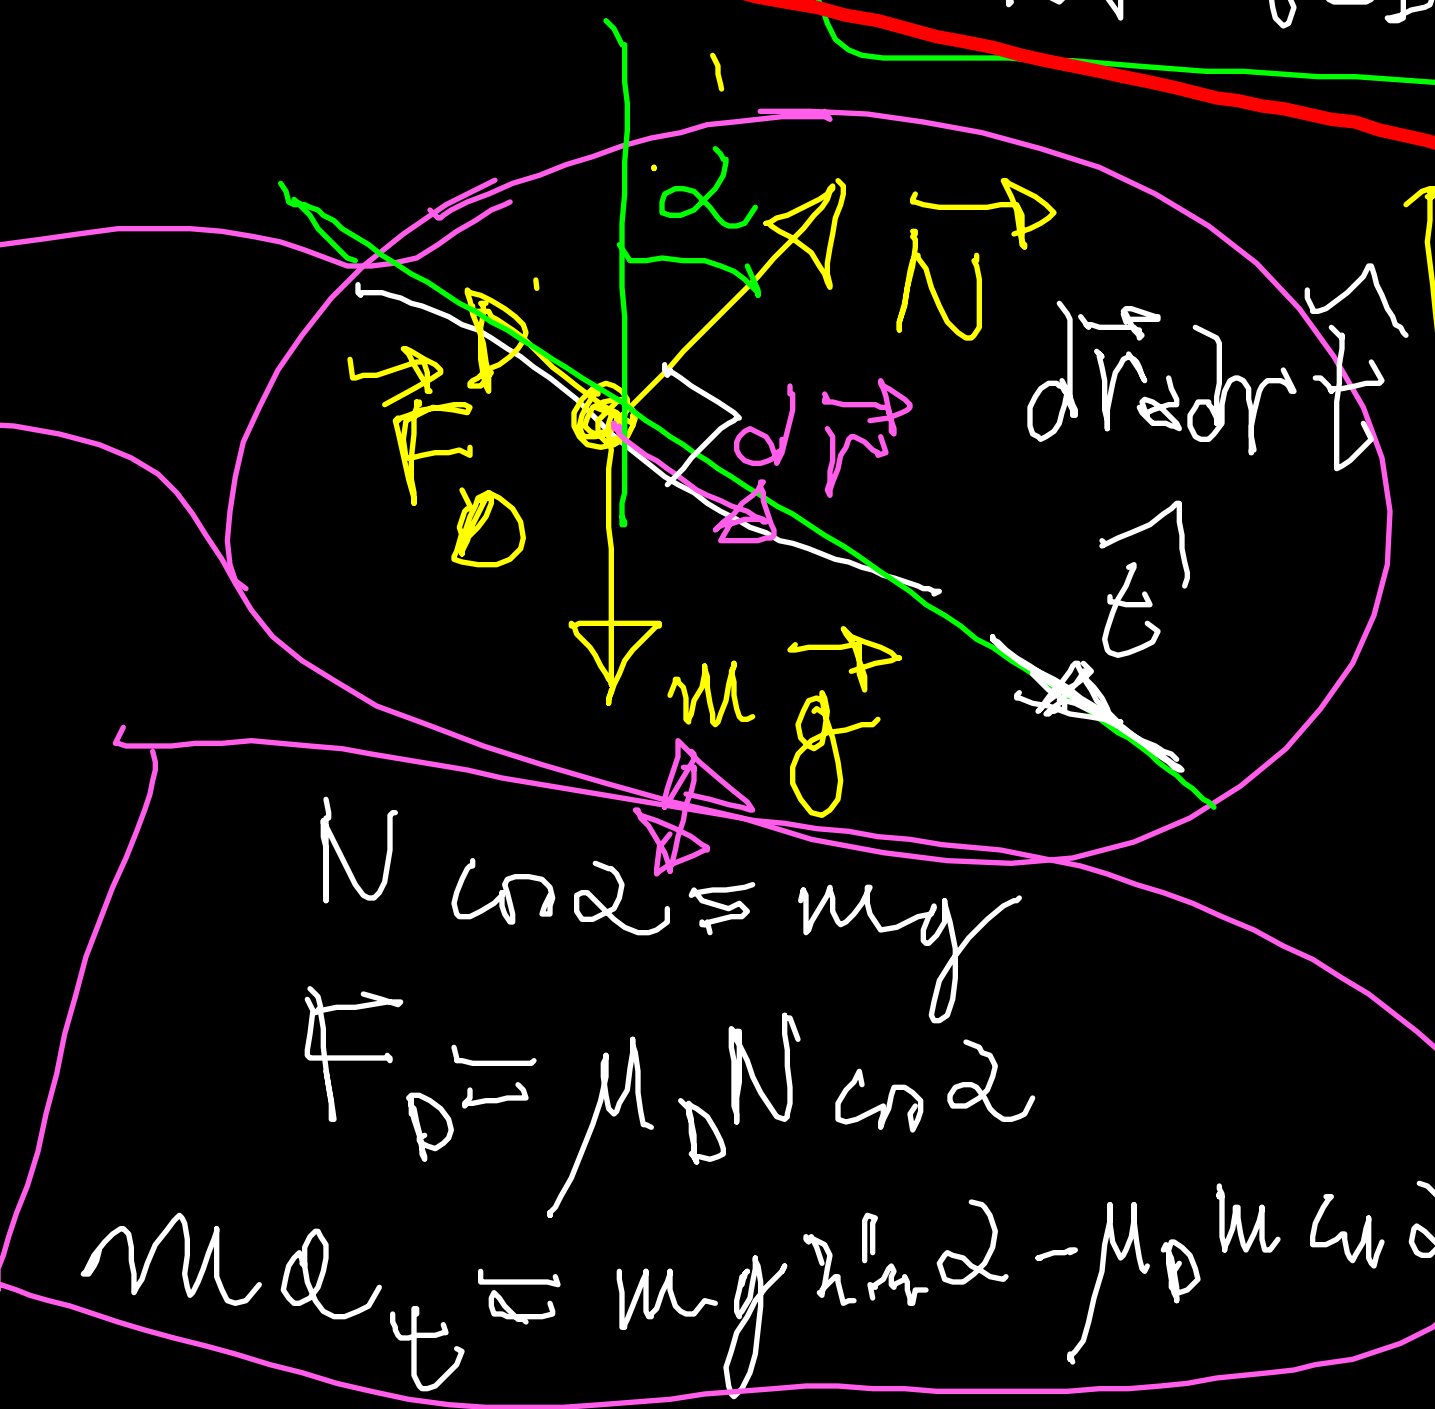 α
N⃗
F⃗_D
dr⃗
dr⃗ = dr t̂
t̂
m g⃗
N cos α = mg
F_D = μ_D N cos α
m a_t = mg sin α - μ_D m cos α